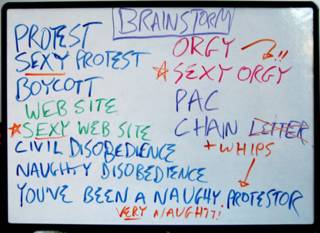 BRAINSTORM
PROTEST
SEXY PROTEST
BOYCOTT
WEB SITE
SEXY WEB SITE
CIVIL DISOBEDIENCE
NAUGHTY DISOBEDIENCE
YOU'VE BEEN A NAUGHY PROTESTOR
VERY NAUGHTY!
ORGY
!!
SEXY ORGY
PAC
CHAIN LETTER
+ WHIPS